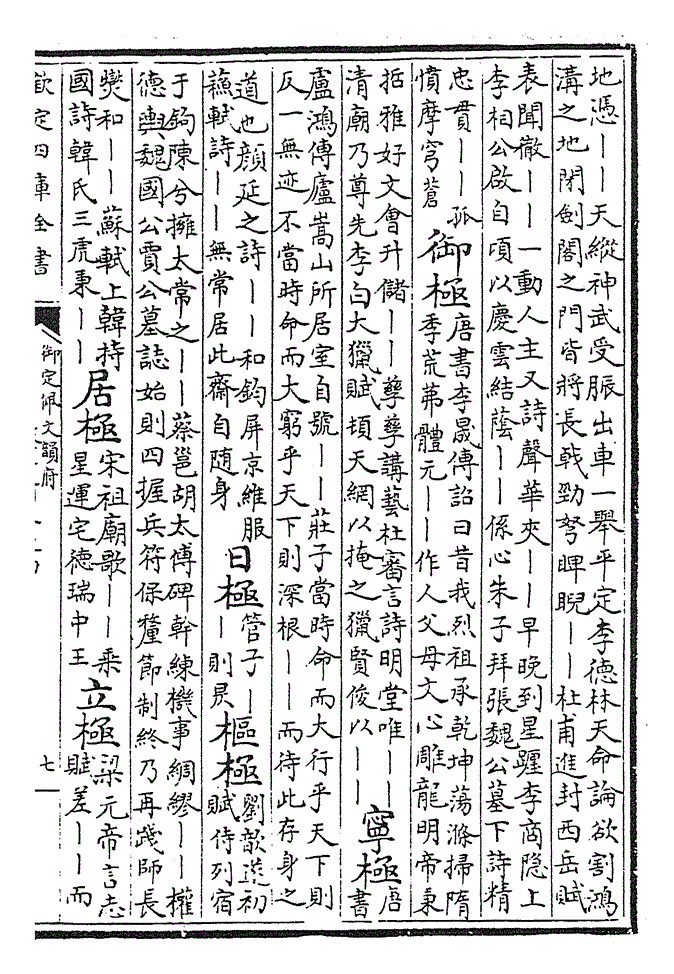 地憑――天縱神武受脤出車一舉平定李德林天命論欲割鴻
溝之地閉劍閣之門皆將長㦸勁弩睥睨――杜甫進封西岳賦
表聞徹――一動人主又詩聲華夾――早晚到星躔李商隐上
李相公啟自頃以慶雲結蔭――係心朱子拜張魏公墓下詩精
忠貫――孤
憤摩穹蒼
御極
唐書李晟傳詔曰昔我烈祖承乾坤蕩滌掃隋
季荒茀體元――作人父母文心雕龍明帝秉
哲雅好文會升儲――孳孳講藝杜審言詩明堂唯――
清廟乃尊先李白大獵賦頓天網以掩之獵賢俊以――
寧極
唐
書
盧鴻傳廬嵩山所居室自號――莊子當時命而大行乎天下則
反一無迹不當時命而大窮乎天下則深根――而待此存身之
道也顏延之詩――和鈞屏京維服
蘇軾詩――無常居此齋自随身
日極
管子――
――則昃
樞極
劉歆遂初
賦侍列宿
于鉤陳兮擁太常之――蔡邕胡太傅碑幹練機事綢繆――權
德輿魏國公賈公墓誌始則四握兵符保釐節制終乃再踐師長
爕和――蘇軾上韓持
國詩韓氏三虎秉――
居極
宋祖廟歌――乘
星運宅德瑞中王
立極
梁元帝言志
賦差――而
欽定四庫全書
御定佩文韻府
七